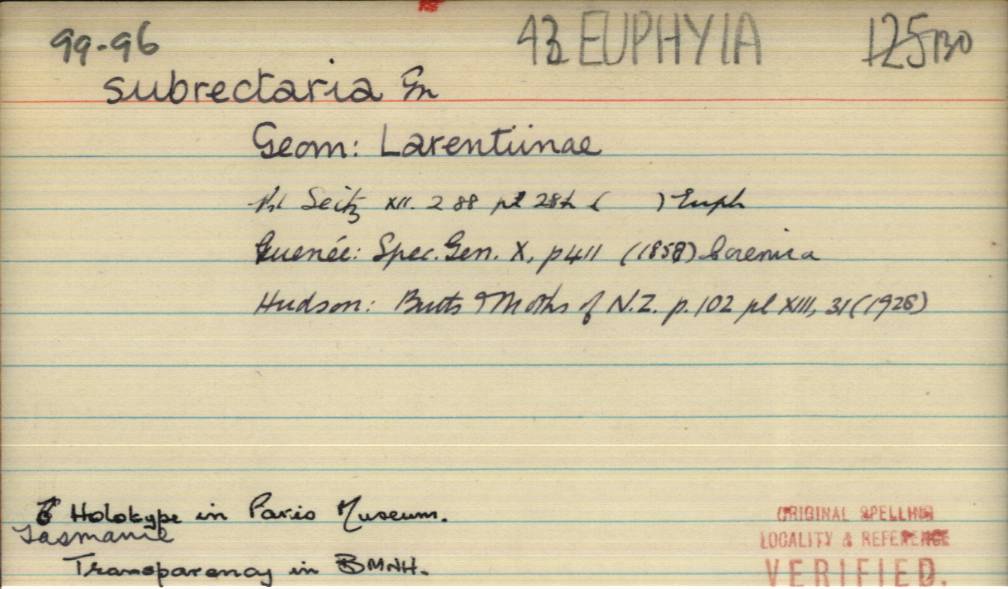 99-96 43 EUPHYIA 125130
subrectaria Gn
Geom: Larentiinae
Seitz XII. 288 pl 28h ( ) Euph
Guenée: Spec. Gen. X, p411 (1858) Coremia
Hudson: Butts & Moths of N.Z. p. 102 pl XIII, 31 (1928)
Holotype in Paris Museum.
Tasmanie
Transparency in BMNH.
ORIGINAL SPELLING
LOCALITY & REFERENCE
VERIFIED.